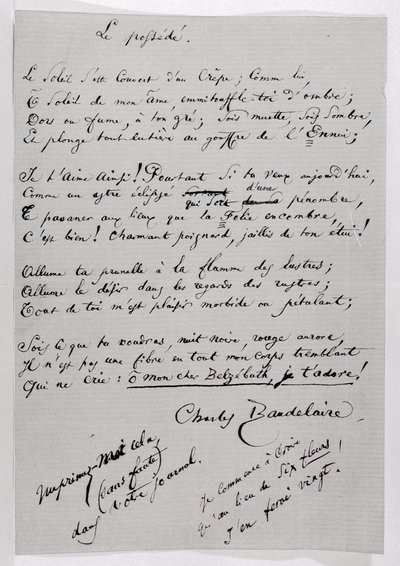 Le possédé.
Le Soleil s'est couvert d'un Crêpe ; Comme lui,
Ô Soleil de mon âme, emmitoufle-toi d'ombre ;
Dors ou fume, à ton gré ; Sois muette, Sois Sombre,
Et plonge tout entière au gouffre de l'Ennui ;
Je t'aime ainsi ! Pourtant si tu veux aujourd'hui,
Comme un astre éclipsé qui sort d'une pénombre,
Te pavaner aux lieux que la Folie encombre,
C'est bien ! Charmant poignard, jaillis de ton étui !
Allume ta prunelle à la flamme des lustres ;
Allume le désir dans les regards des rustres ;
Tout de toi m'est plaisir morbide ou pétulant ;
Sois ce que tu voudras, nuit noire, rouge aurore,
Il n'est pas une fibre en tout mon corps tremblant
Qui ne crie : Ô mon cher Belzébuth, je t'adore !
Charles Baudelaire.
Imprimez-moi cela
(sans faute)
dans votre journal.
Je commence à croire
qu'au lieu de Six fleurs
j'en ferai vingt !